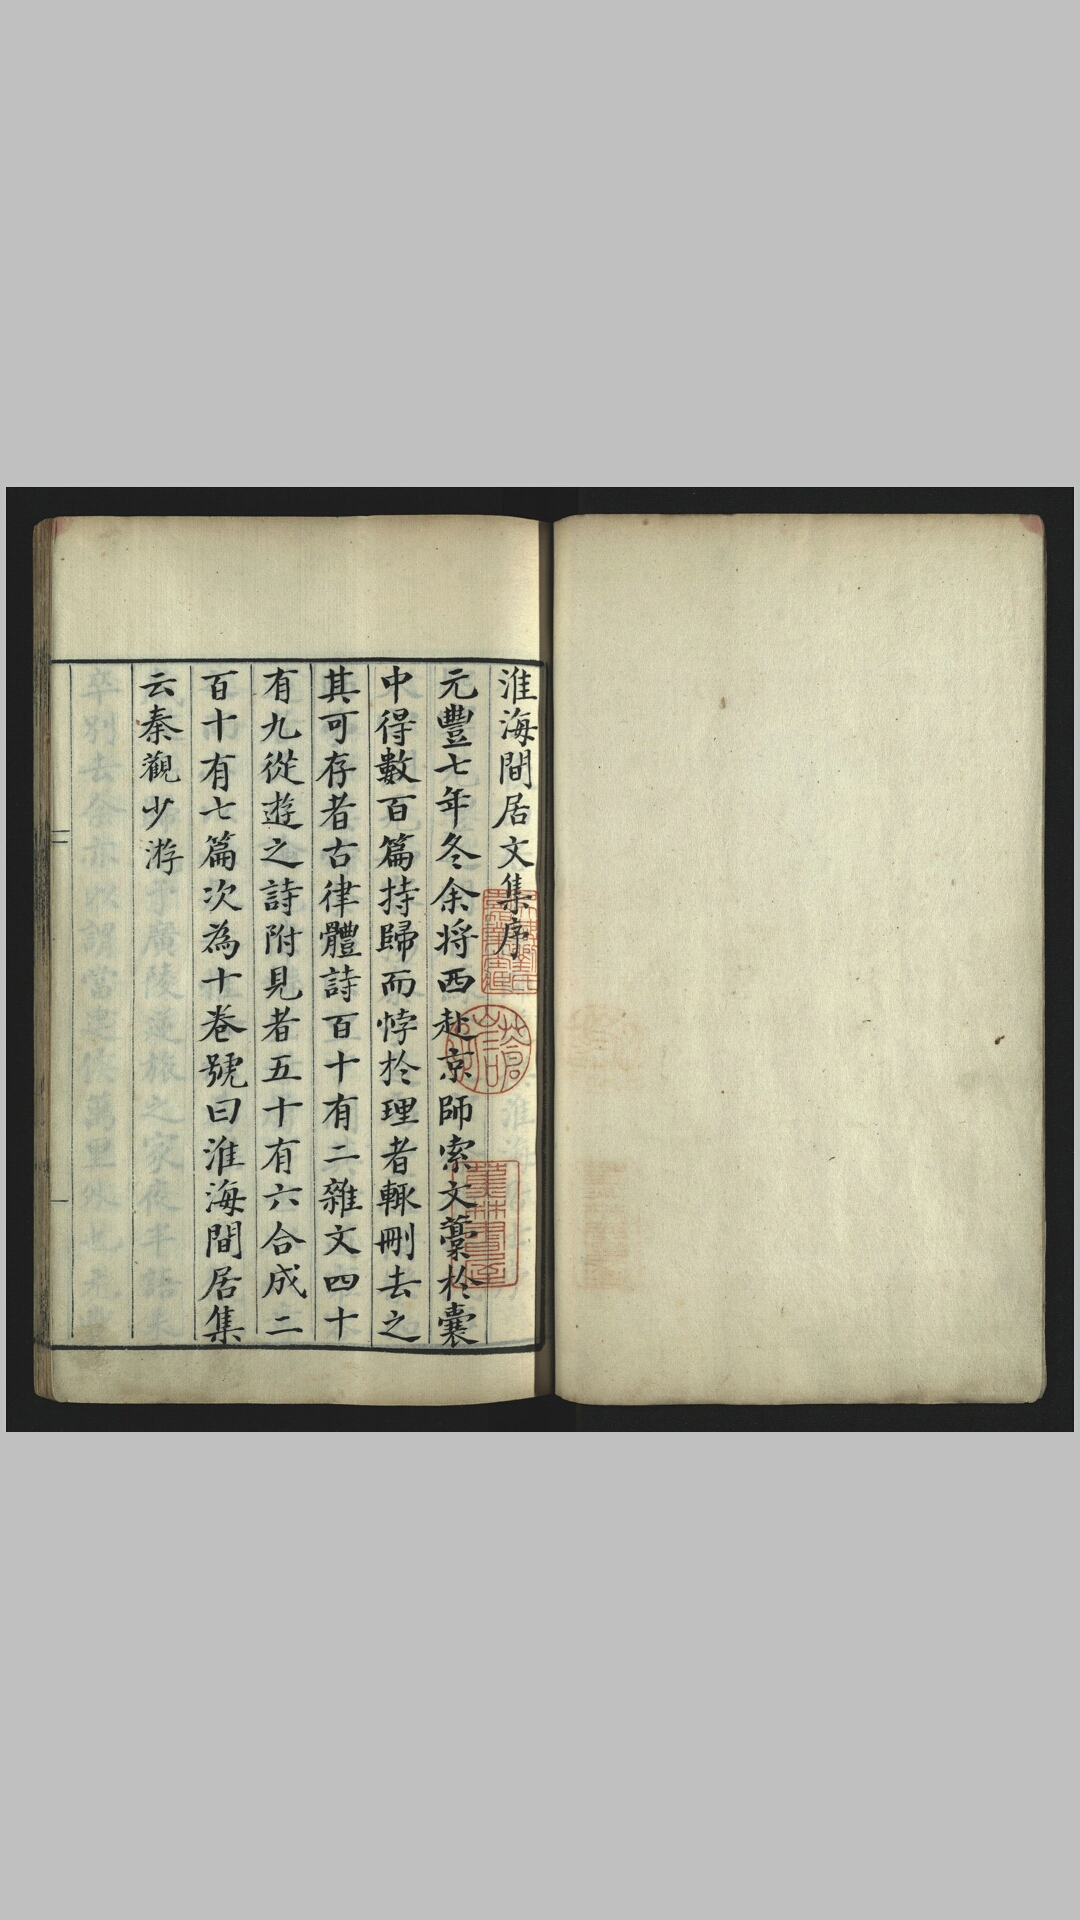 淮海間居文集序
元豐七年冬余将西赴京師索文藁於囊
中得數百篇持歸而悖於理者輒刪去之
其可存者古律體詩百十有二雜文四十
有九從遊之詩附見者五十有六合成二
百十有七篇次為十卷號曰淮海間居集
云秦觀少游